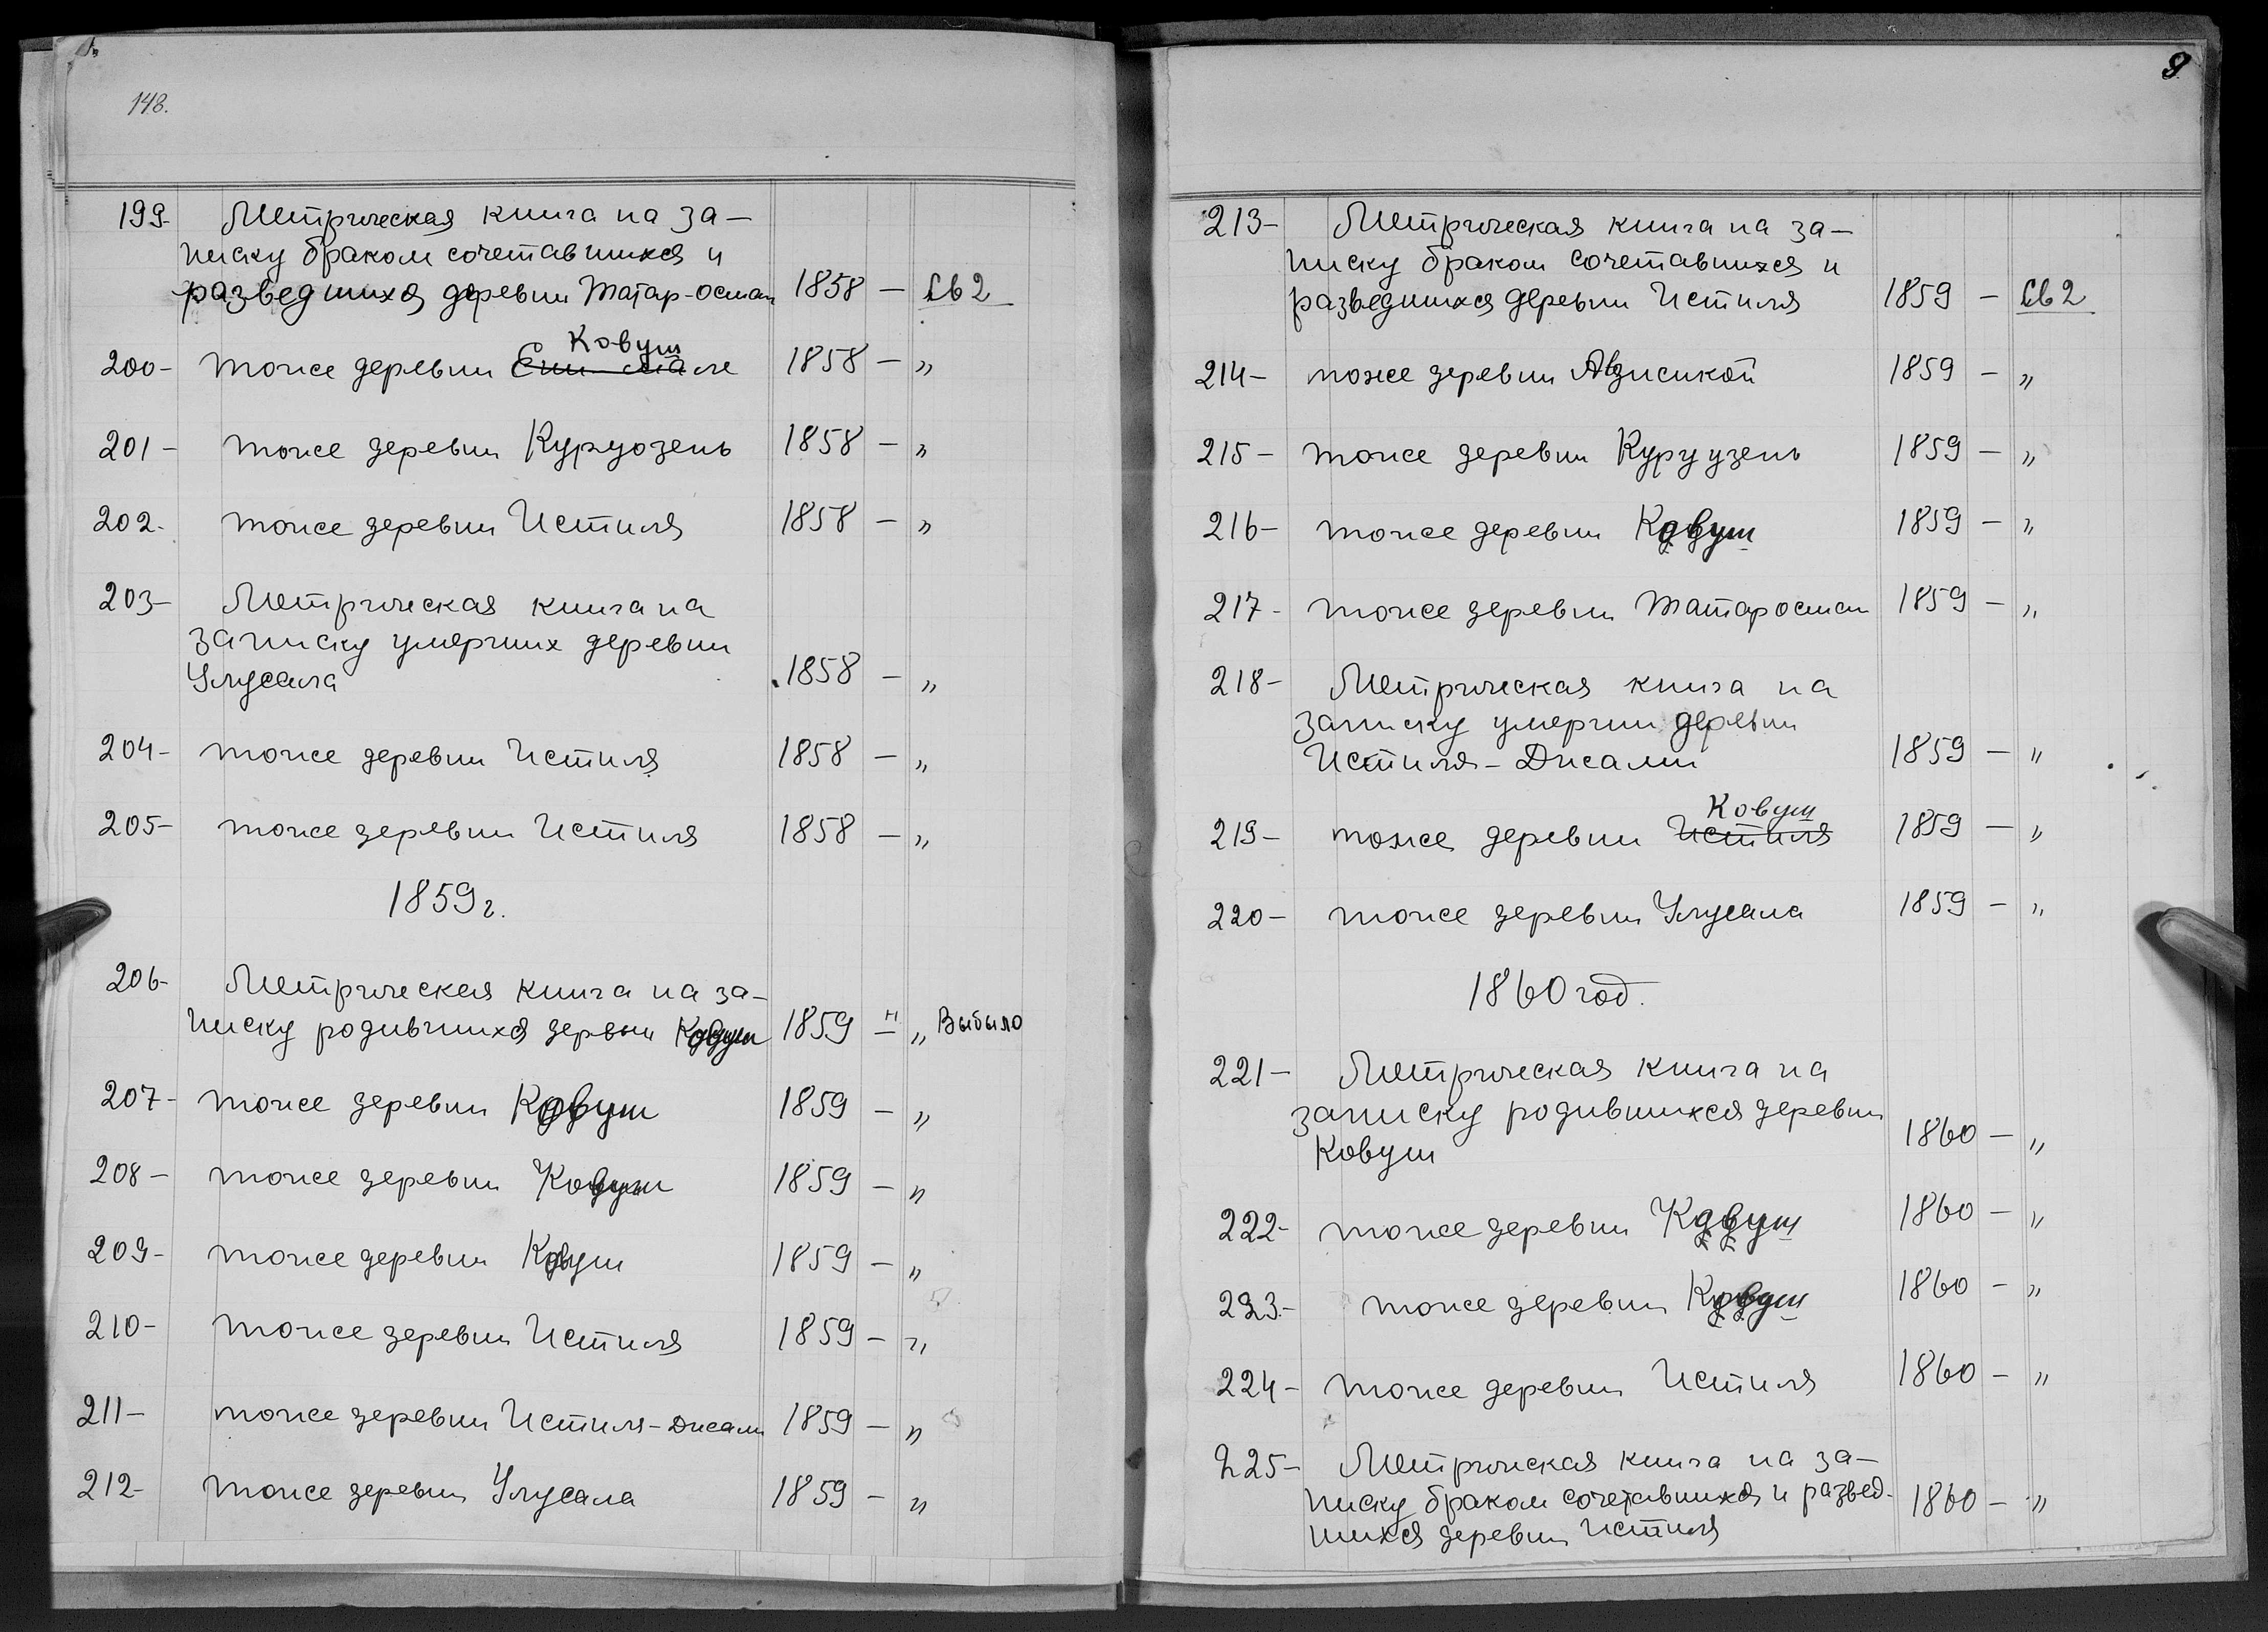 148.
199- Метрическая книга на за-
писку браком сочетавшихся и
разведшихся деревни Татар-осман 1858 - Св 2
Ковуш
200- тоже деревни Ени-Сале 1858 - "
201- тоже деревни Куруозень 1858 - "
202- тоже деревни Истиля 1858 - "
203- Метрическая книга на
записку умерших деревни
Улусала 1858 - "
204- тоже деревни Истиля 1858 - "
205- тоже деревни Истиля 1858 - "
1859 г.
206- Метрическая книга на за-
писку родившихся дервни Ковуш 1859 - " Выбыло
207- тоже деревни Ковуш 1859 - "
208- тоже деревни Ковуш 1859 - "
209- тоже деревни Ковуш 1859 - "
210- тоже деревни Истиля 1859 - "
211- тоже деревни Истиля-Джами 1859 - "
212- тоже деревни Улусала 1859 - "
9
213- Метрическая книга на за-
писку браком сочетавшихся и
разведшихся деревни Истиля 1859 - Св 2
214- тоже деревни 1859 - "
215- тоже деревни Куруузень 1859 - "
216- тоже деревни Ковуш 1859 - "
217- тоже деревни Татаросман 1859 - "
218- Метрическая книга на
записку умерши деревни
Истиля-Джами 1859 - "
Ковуш
219- тоже деревни Истиля 1859 - "
220- тоже деревни Улусала 1859 - "
1860 год.
221- Метрическая книга на
записку родившихся деревни
Ковуш 1860 - "
222- тоже деревни Ковуш 1860 - "
223- тоже деревни Ковуш 1860 - "
224- тоже деревни Истиля 1860 - "
225- Метрическая книга на за-
писку браком сочетавшихся и развед-
шихся деревни Истиля 1860 - "